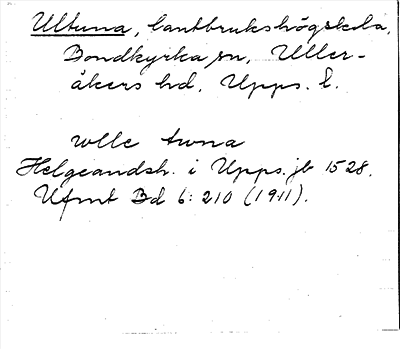 Ultuna, lantbrukshögskola,
Bondkyrka sn, Uller-
åkers hd, Upps. l.
wlle twna
Helgeandsh. i Upps. jb 1528.
Ufmt Bd 6: 210 (1911).